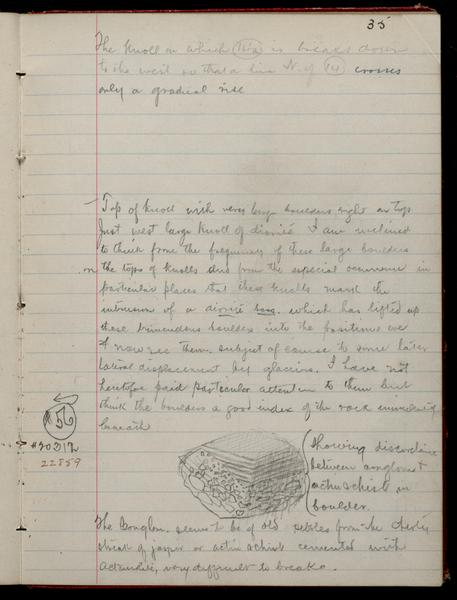 35
The Knoll on which 15a is breaks down
to the west so that a line N. of 14 crosses
only a gradual rise
Top of Knoll with very large boulders right on top
Just west large Knoll of diorite I am inclined
to think from the frequency of these large boulders
on the tops of knolls and from the especial occurrence in
particular places that these knolls mark the
intrusion of a which has lifted up
these tremendous boulders into the positions we
now see them, subject of course to some later
lateral displacement by glaciers. I have not
heretofore paid particular attention to them but
think the boulders a good index of the rock immediately
beneath
#20212
22859
Showing discordance
between conglom. &
actin schist in
boulder.
The Conglom. seems to be of old pebbles from the cherty
of jasper or actin schist cemented with
very difficult to break.